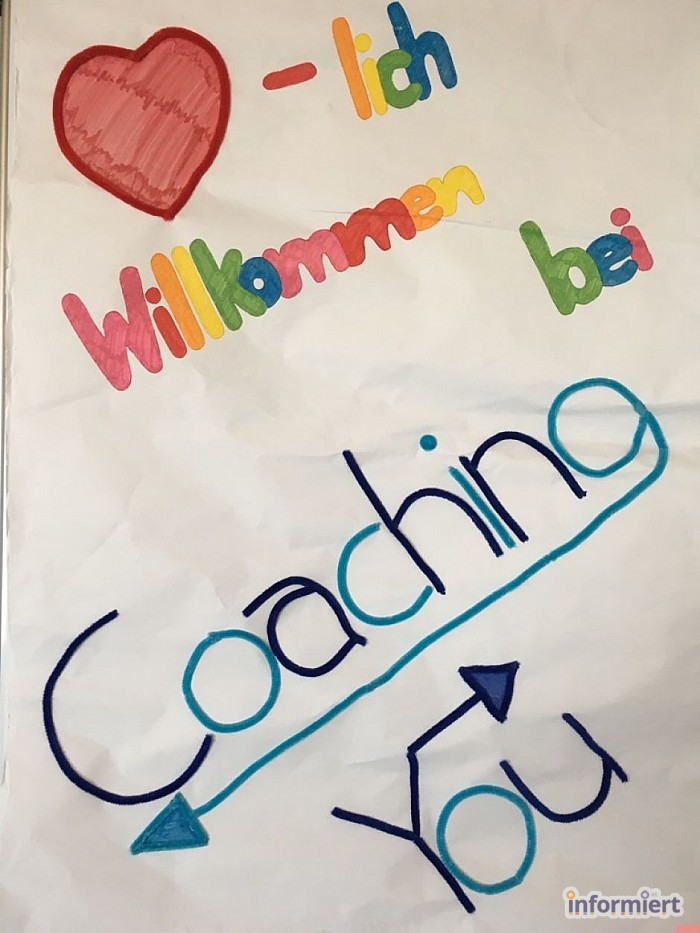 -lich
Willkommen bei
Coaching
You
informiert